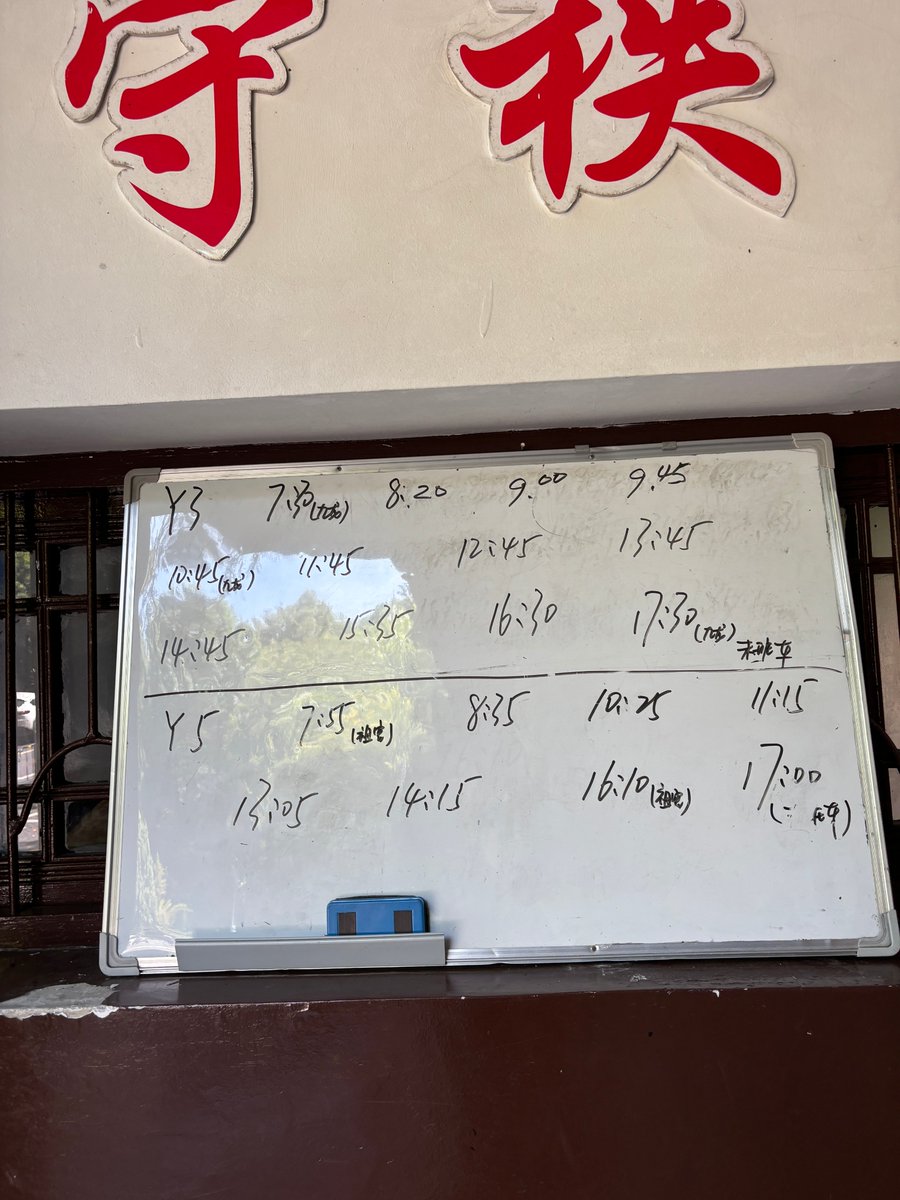 守秩
Y3 7:30(九龙) 8:20 9:00 9:45
10:45(九龙) 11:45 12:45 13:45
14:45 15:35 16:30 17:30(九龙) 末班车
Y5 7:55(祖宫) 8:35 10:25 11:15
13:05 14:15 16:10(祖宫) 17:00